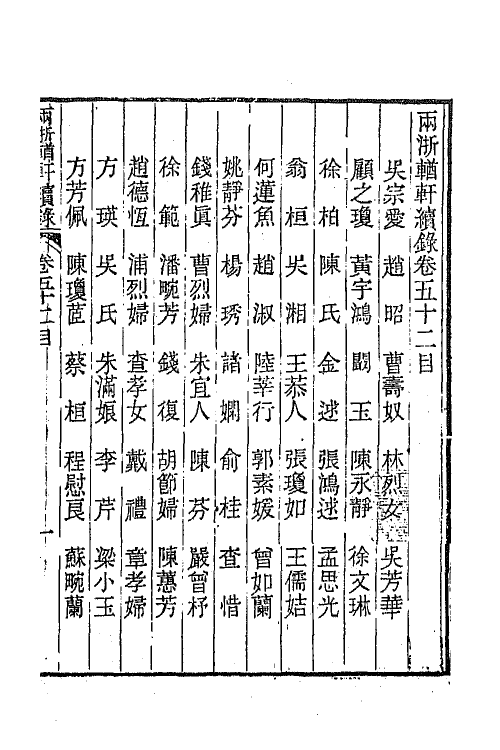 兩浙輶軒續錄卷五十二目
吳宗愛 趙昭 曹壽奴 林烈女 吳芳華
顧之瓊 黃字鴻 闞玉 陳永靜 徐文琳
徐柏 陳氏 金逑 張鴻逑 孟思光
翁桓 吳湘 王恭人 張瓊如 王儒姞
何蓮魚 趙淑 陸莘行 郭素媛 曾如蘭
姚靜芬 楊琇 諸嫻 俞桂 查惜
錢稚眞 曹烈婦 朱宜人 陳芬 嚴曾杼
徐範 潘畹芳 錢復 胡節婦 陳蕙芳
趙德恆 浦烈婦 查孝女 戴禮 章孝婦
方瑛 吳氏 朱滿娘 李芹 梁小玉
方芳佩 陳瓊茝 蔡桓 程慰良 蘇畹蘭
兩浙輶軒續錄 卷五十二目 一